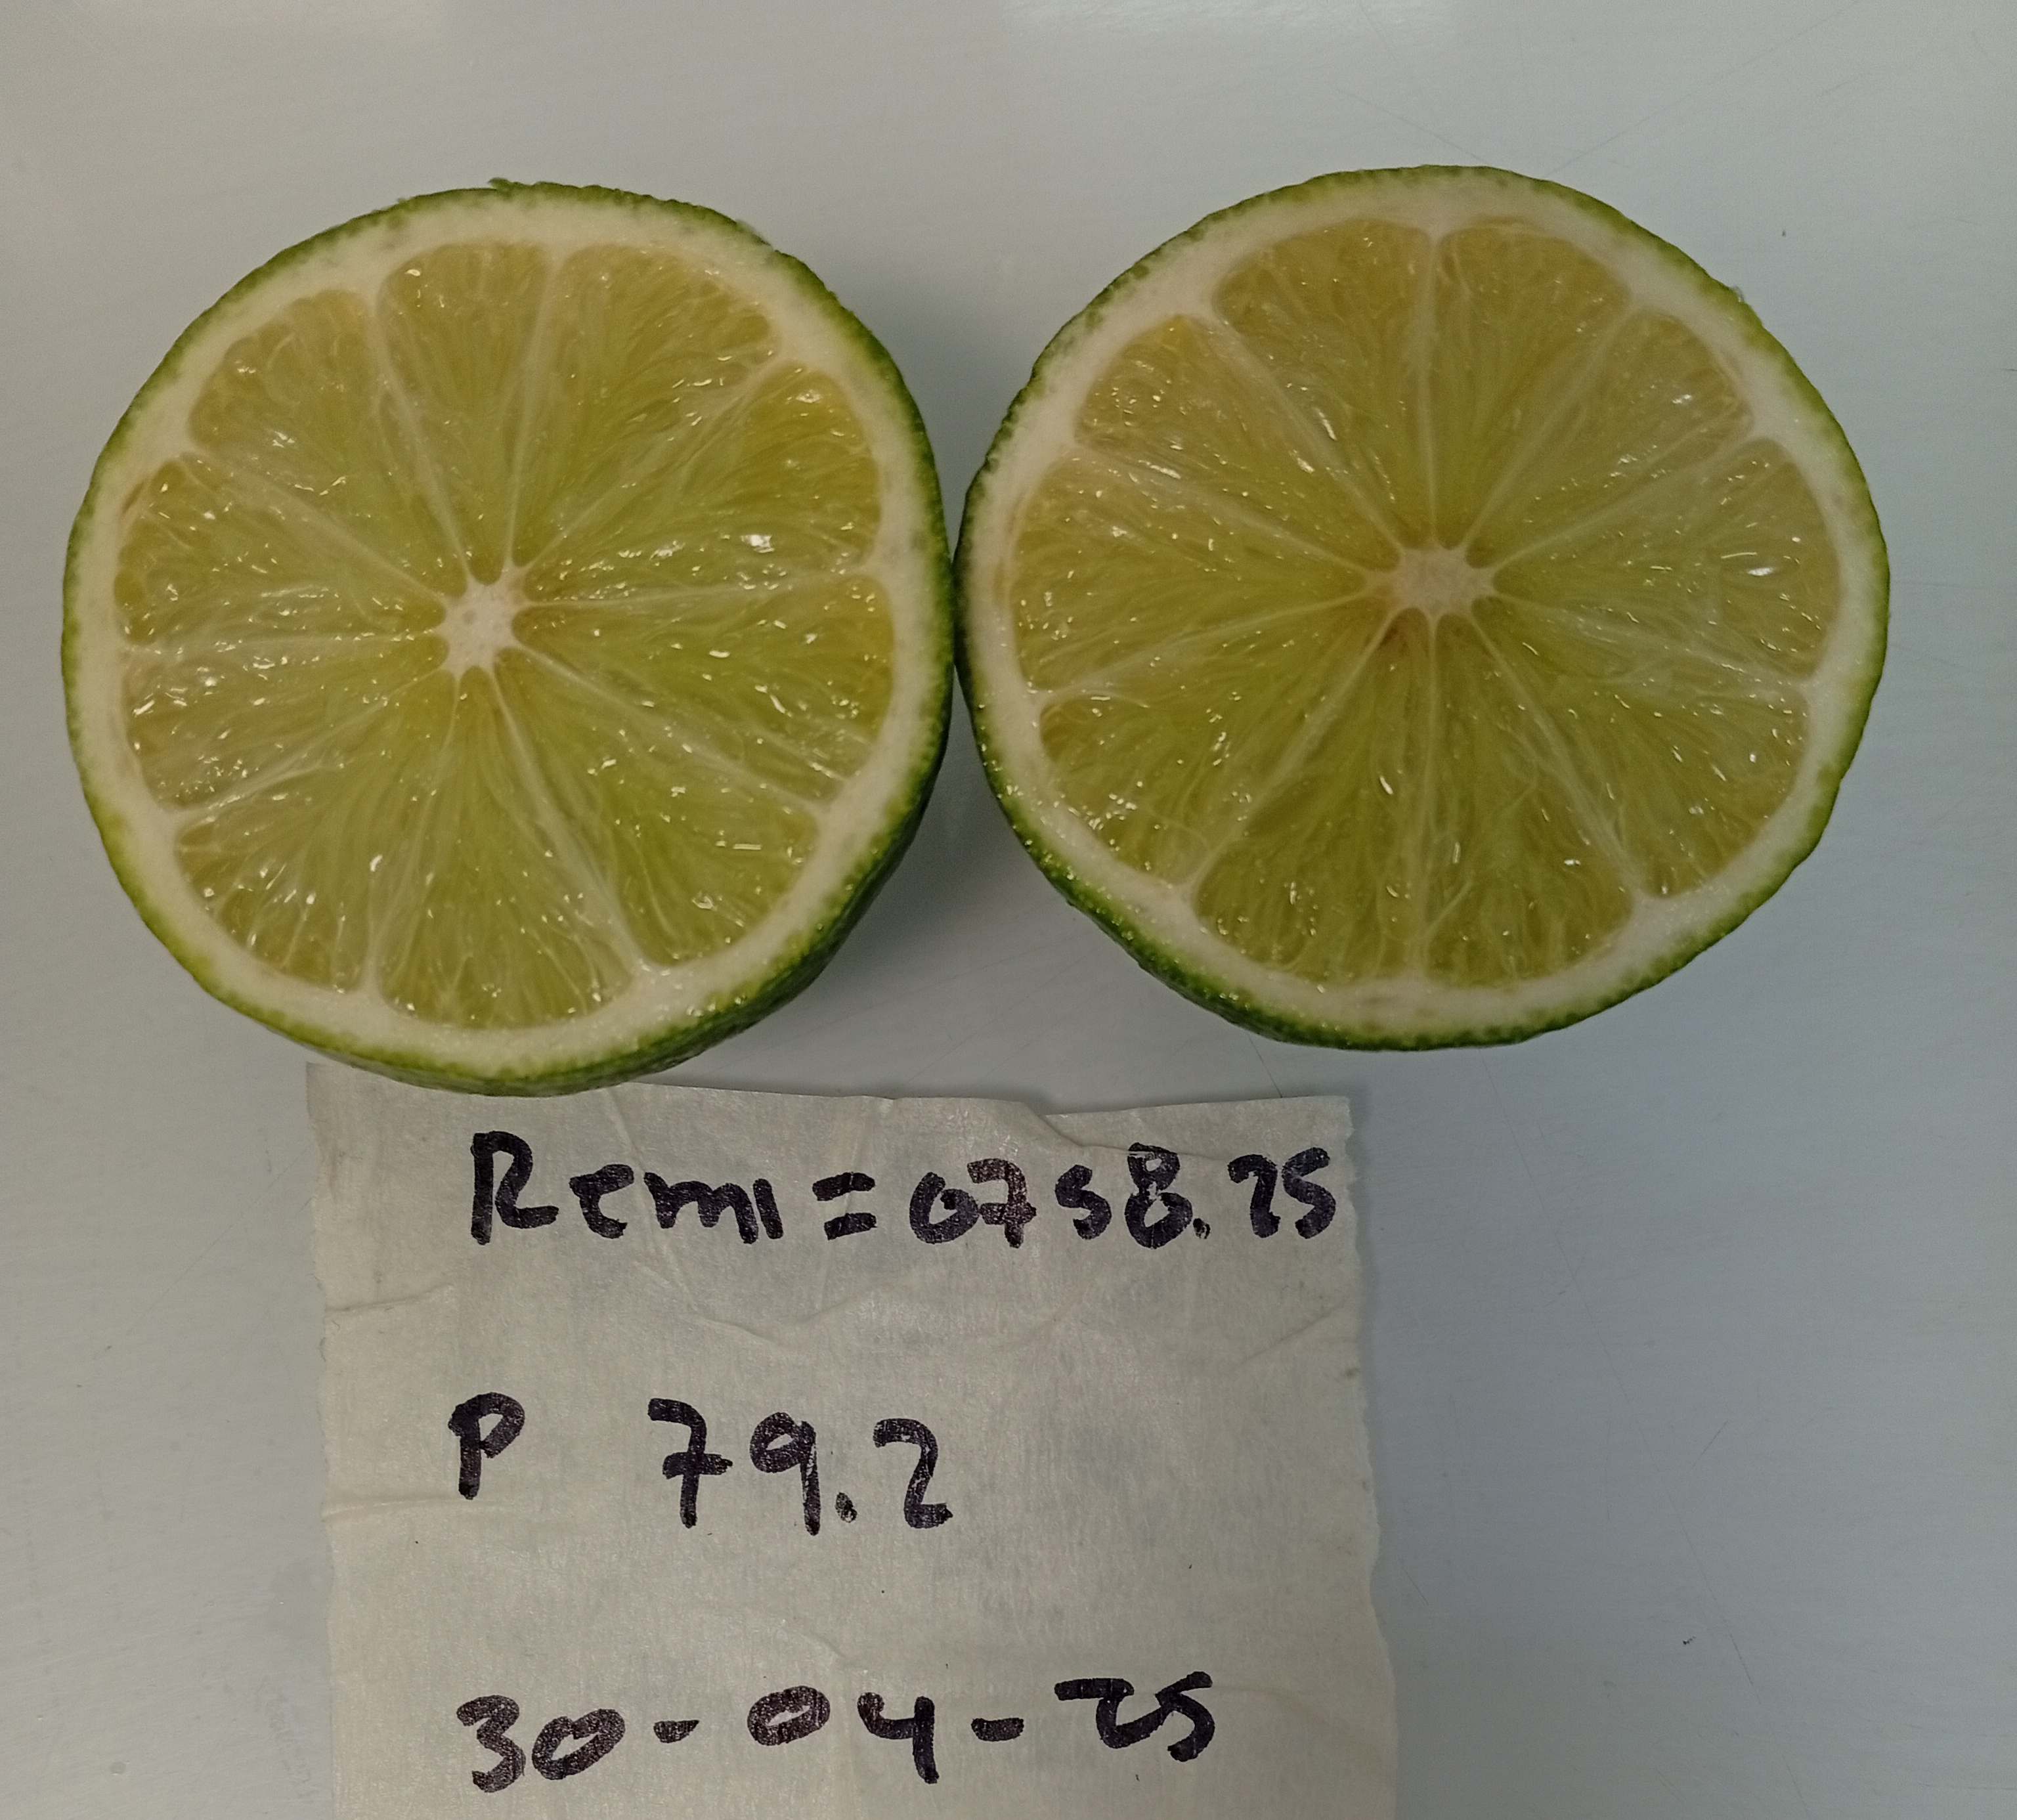 Remi = 0758.25
P 79.2
30-04-25